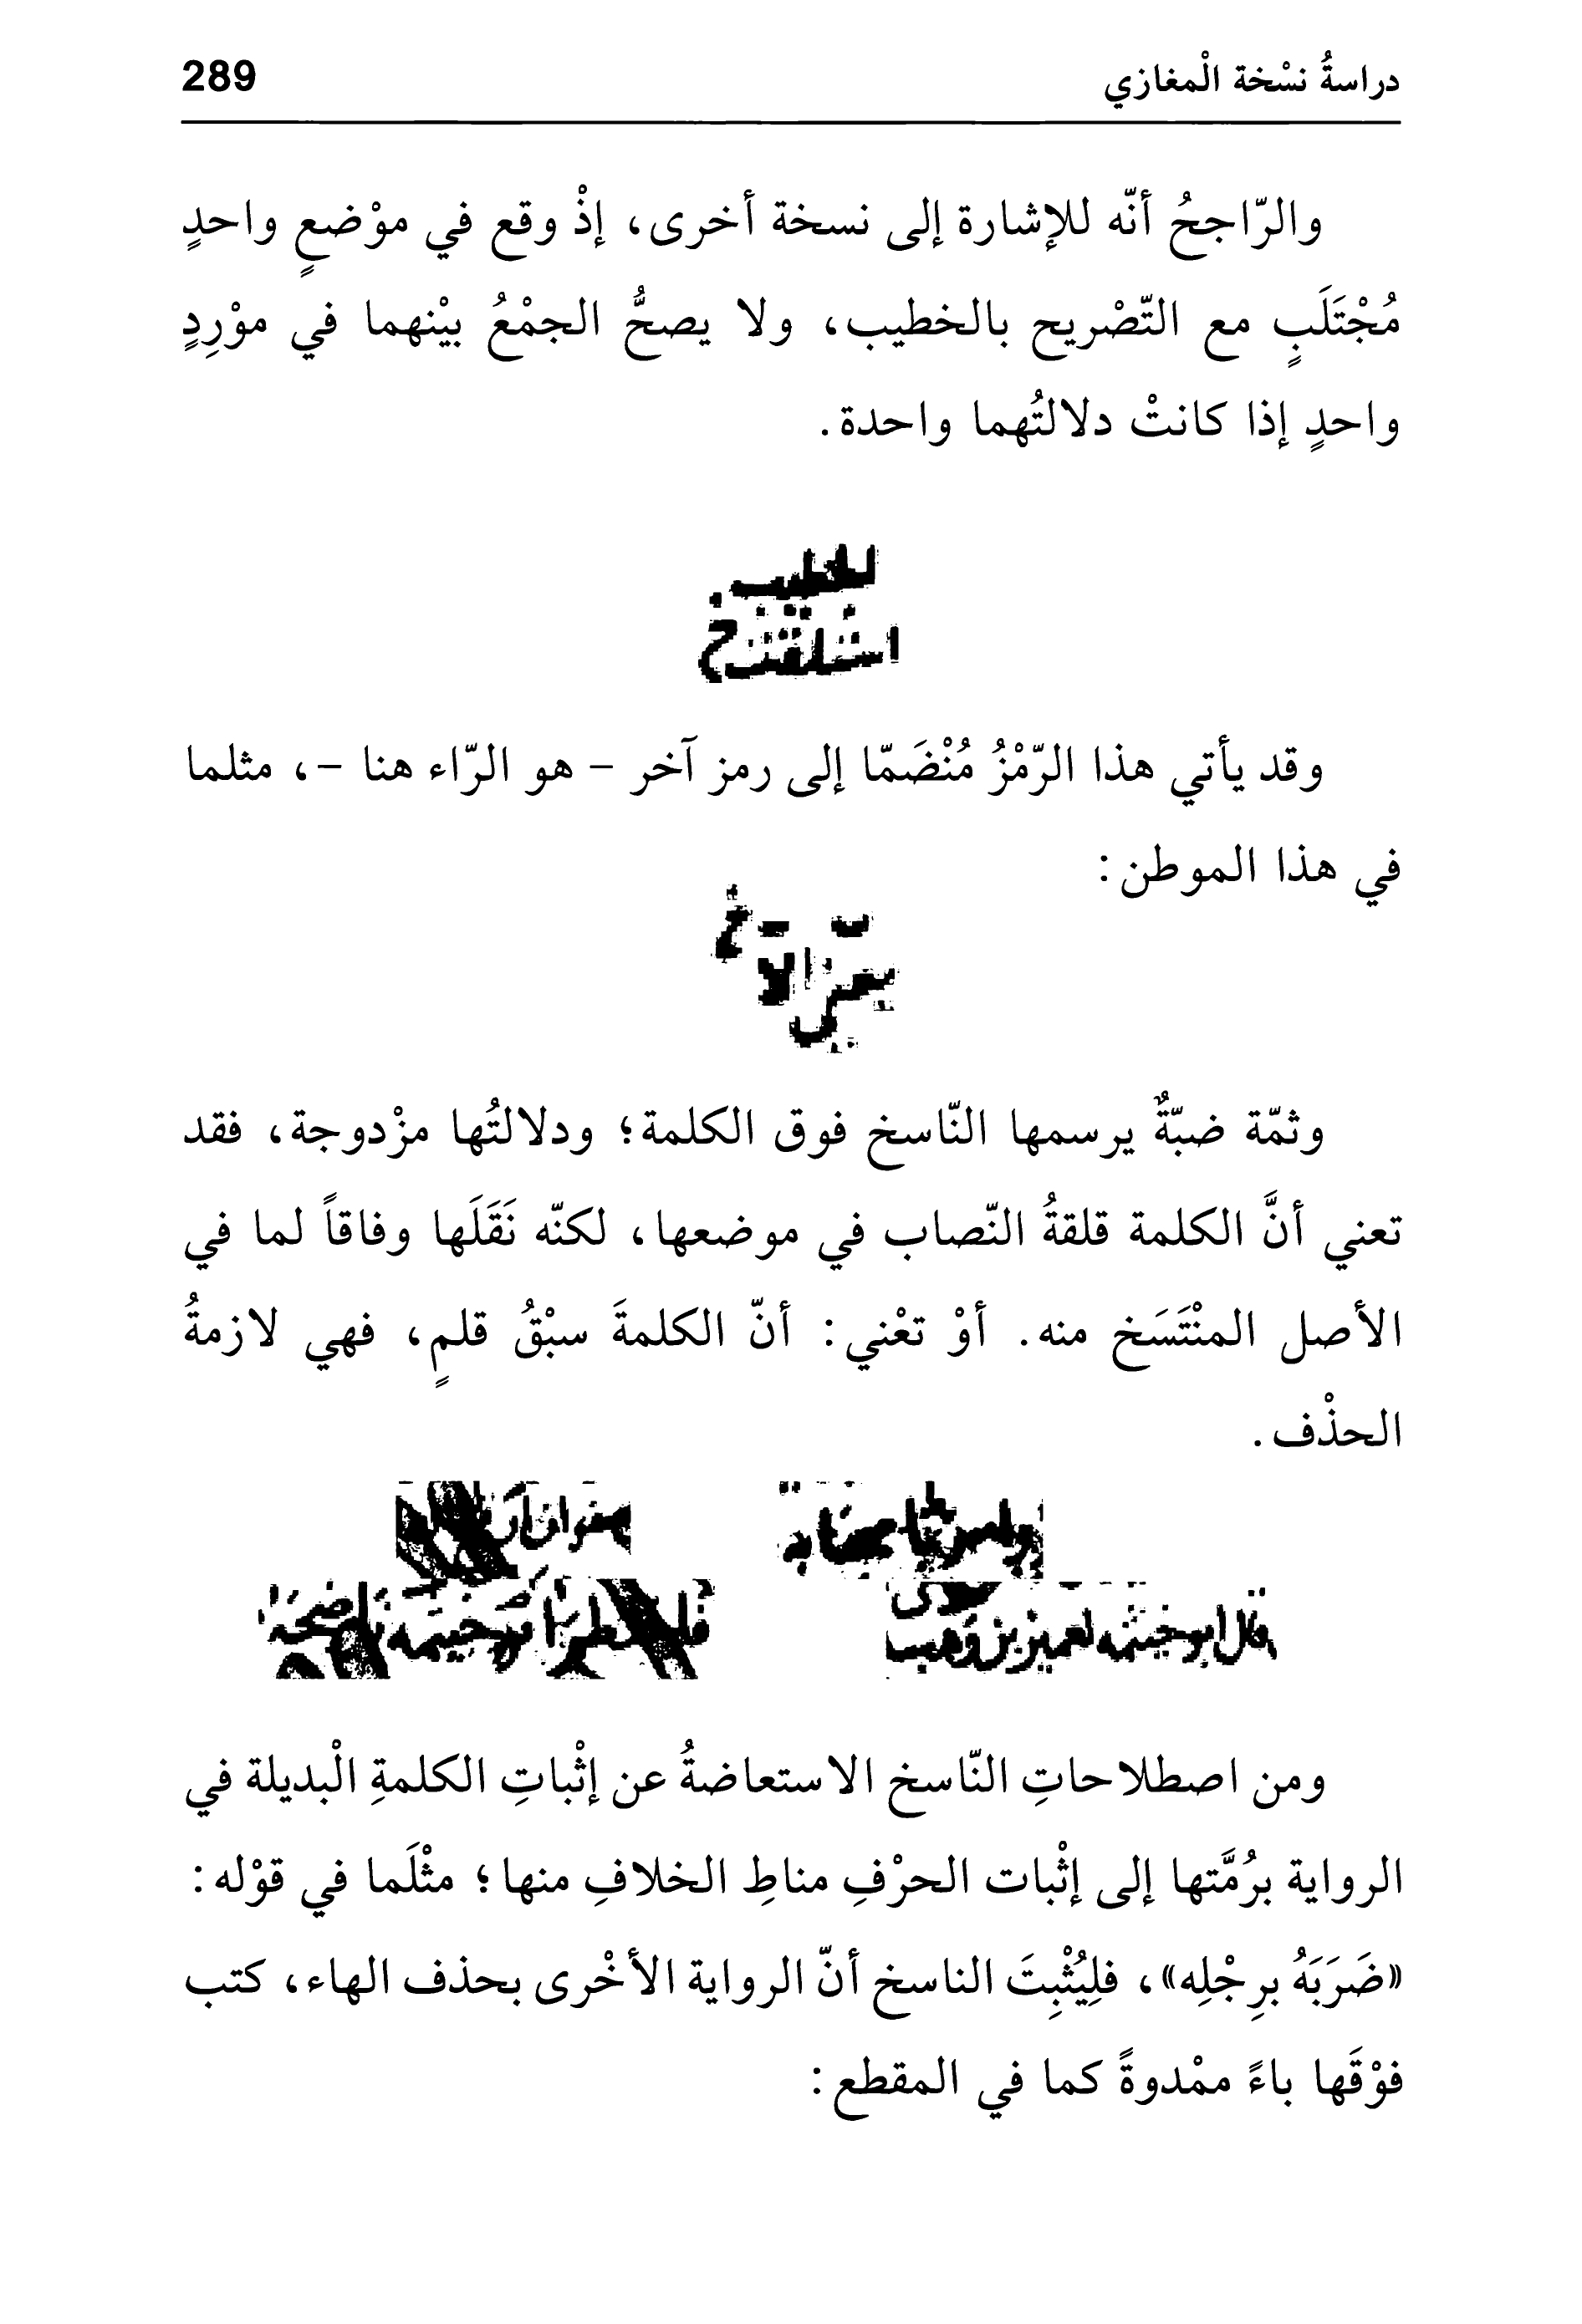 دراسةُ نسْخة الْمغازي 289
والرّاجحُ أنّه للإشارة إلى نسخة أخرى، إذْ وقع في موْضعٍ واحدٍ
مُجْتَلَبٍ مع التّصْريح بالخطيب، ولا يصحُّ الجمْعُ بيْنهما في موْرِدٍ
واحدٍ إذا كانتْ دلالتُهما واحدة.
وقد يأتي هذا الرّمْزُ مُنْضَمّا إلى رمز آخر – هو الرّاء هنا –، مثلما
في هذا الموطن:
وثمّة ضبّةٌ يرسمها النّاسخ فوق الكلمة؛ ودلالتُها مزْدوجة، فقد
تعني أنَّ الكلمة قلقةُ النّصاب في موضعها، لكنّه نَقَلَها وفاقاً لما في
الأصل المنْتَسَخ منه. أوْ تعْني: أنّ الكلمةَ سبْقُ قلمٍ، فهي لازمةُ
الحذْف.
قال ابو خيثمه لعمير بن وهب
ومن اصطلاحاتِ النّاسخ الاستعاضةُ عن إثْباتِ الكلمةِ الْبديلة في
الرواية برُمَّتها إلى إثْبات الحرْفِ مناطِ الخلافِ منها؛ مثْلَما في قوْله:
«ضَرَبَهُ برِجْلِه»، فلِيُثْبِتَ الناسخ أنّ الرواية الأخْرى بحذف الهاء، كتب
فوْقَها باءً ممْدوةً كما في المقطع: